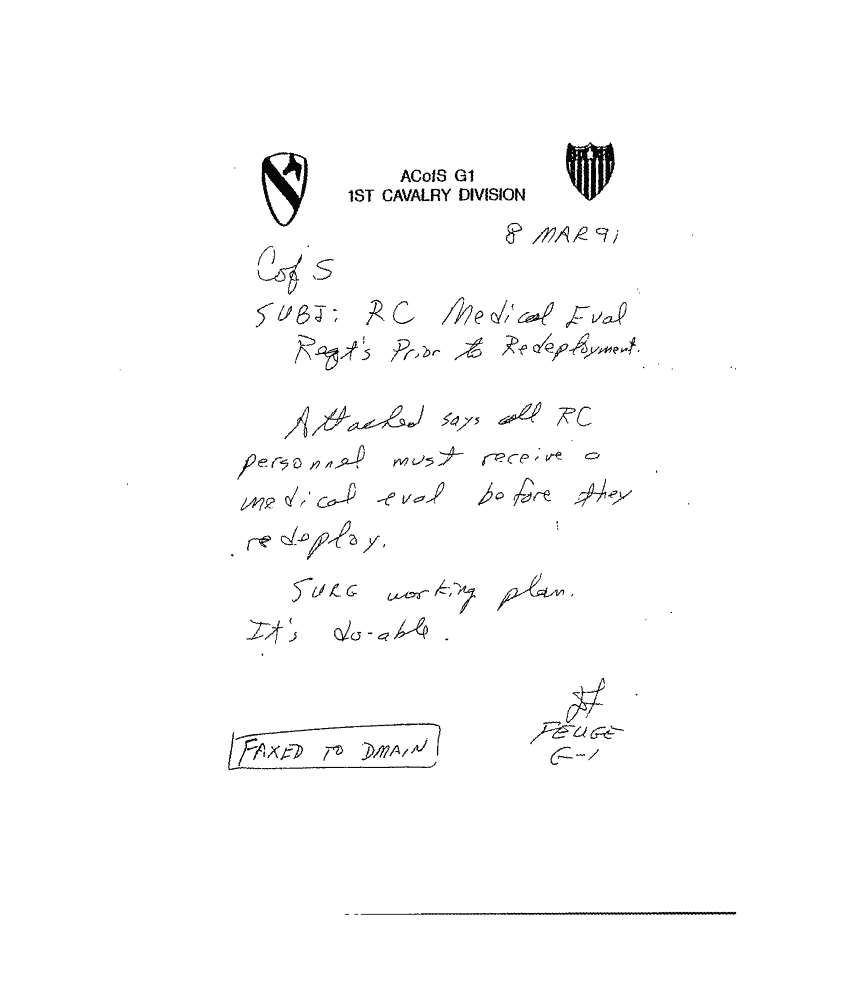 ACofS G1
1ST CAVALRY DIVISION
8 MAR 91
Cof S
SUBJ: RC Medical Eval
Reqt's Prior to Redeployment.
Attached says all RC
personnel must receive a
medical eval before they
redeploy.
SURG working plan.
It's do-able.
FEUGE
G-1
FAXED TO DMAIN